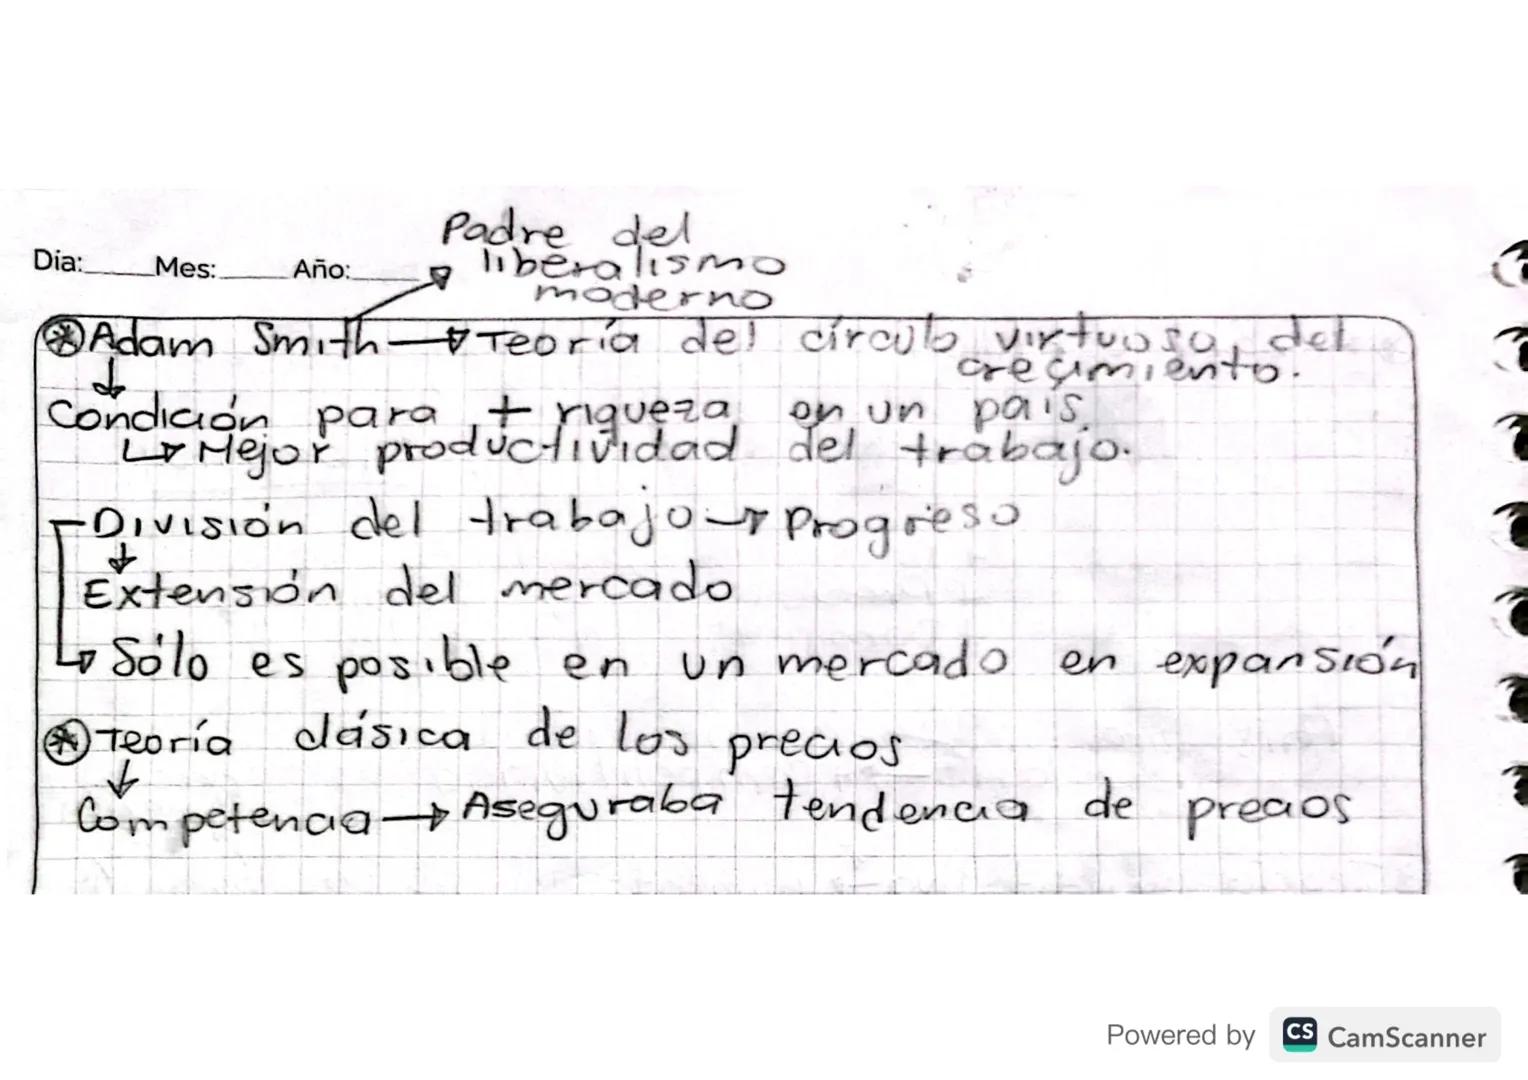 Padre del
Dia: Mes: Año: liberalismo
moderno
Adam Smith → Teoría del círculo virtuoso del
crecimiento.
↓
Condición para + riqueza en un país
↳ Mejor productividad del trabajo.
División del trabajo → Progreso
↓
Extensión del mercado
↳ Sólo es posible en un mercado en expansión
Teoría clásica de los precios
↓
Competencia → Aseguraba tendencia de precios
Powered by CS CamScanner